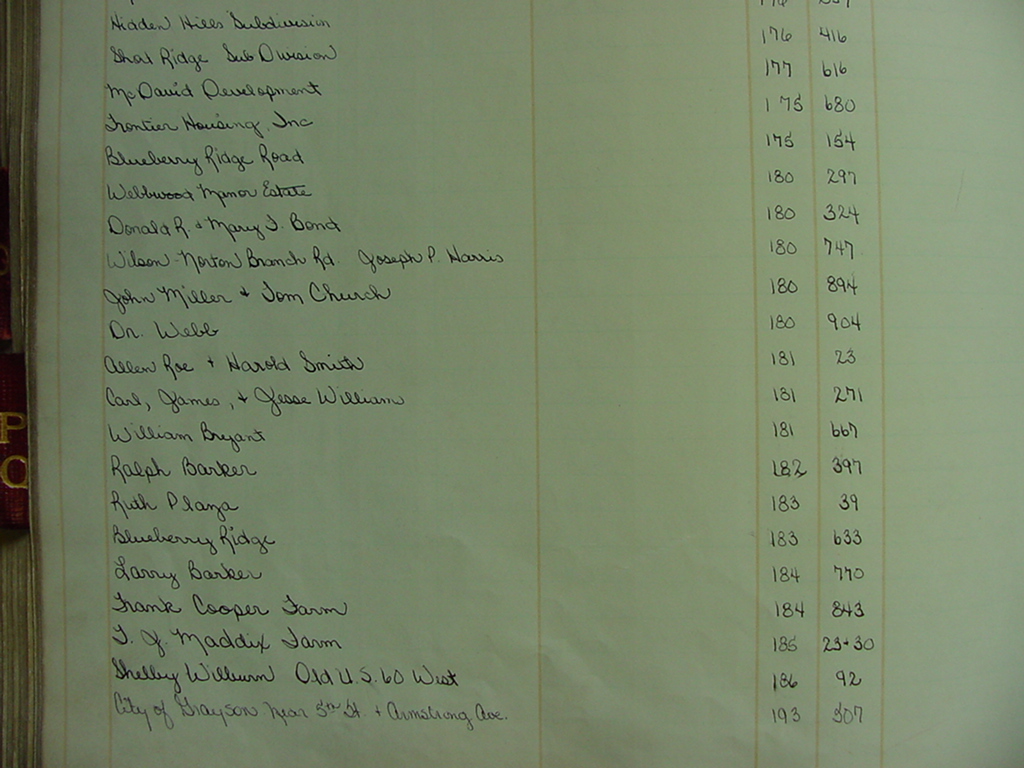 Hidden Hills Subdivision
Shot Ridge Sub Division 176 416
McDavid Development 177 616
Frontier Housing, Inc 175 680
Blueberry Ridge Road 175 154
Wellwood Manor Estate 180 297
Donald R. & Mary J. Bond 180 324
Wilson-Norton Branch Rd. Joseph P. Harris 180 747
John Miller & Tom Church 180 894
Dr. Webb 180 904
Allen Roe + Harold Smith 181 23
Carl, James, & Jesse William 181 271
William Bryant 181 667
Ralph Barker 182 397
Ruth Plaza 183 39
Blueberry Ridge 183 633
Larry Barker 184 770
Frank Cooper Farm 184 843
T. J. Maddix Farm 185 23+30
Shelby William Old U.S. 60 West 186 92
City of Grayson Near 5th St + Armstrong Ave. 193 507